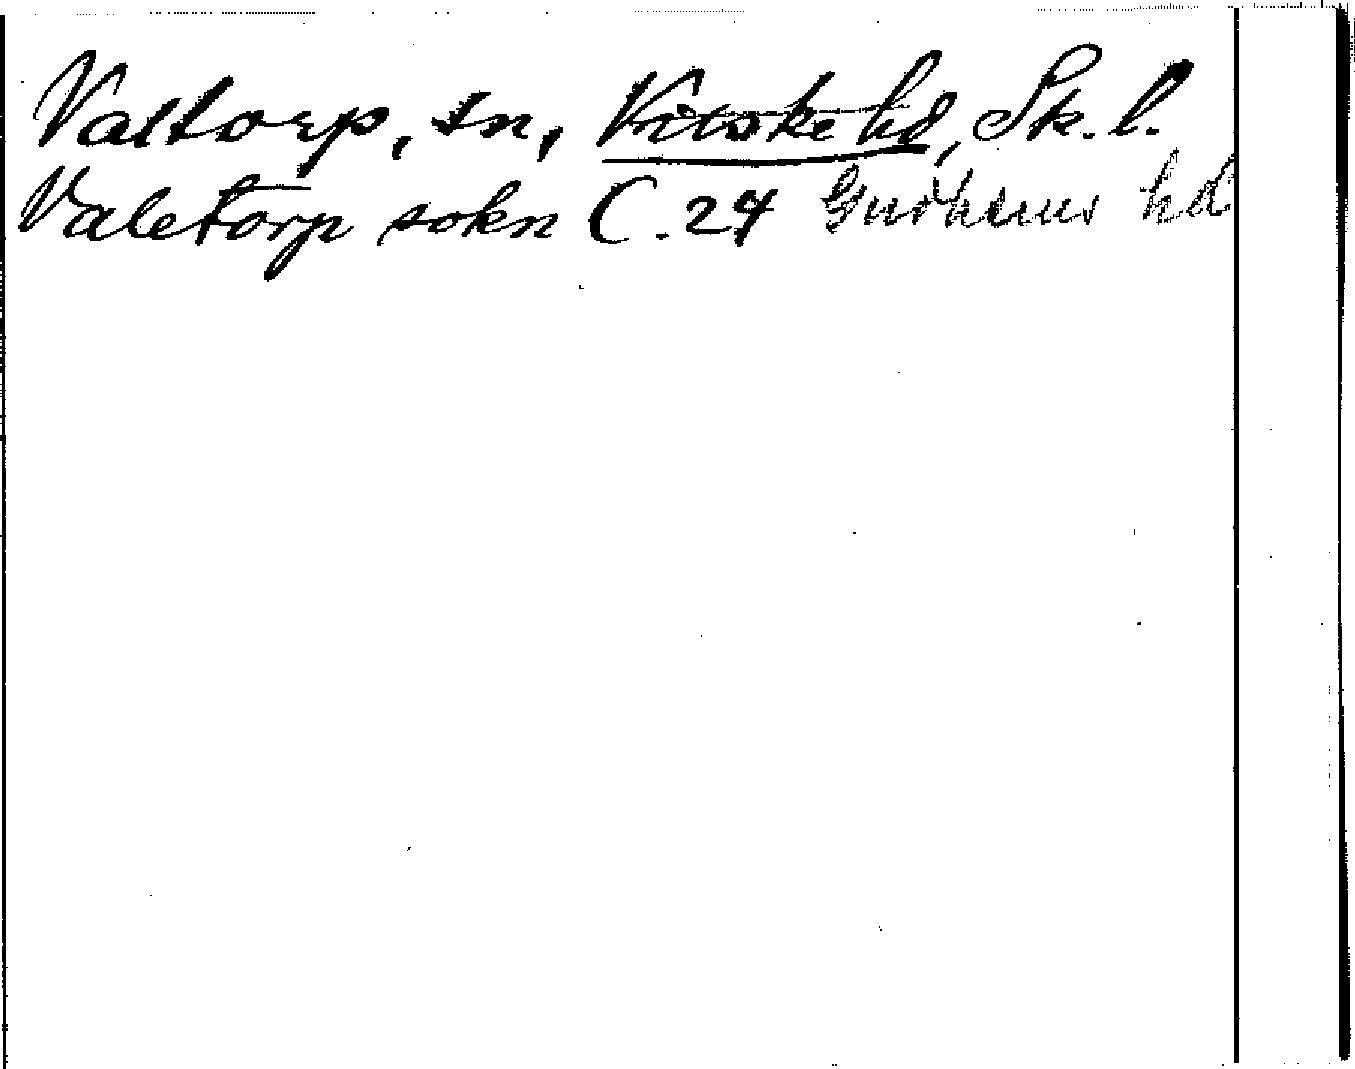 Valtorp, sn, Vilske hd, Sk. l.
Valetorp sokn C. 24 Gudhems hd